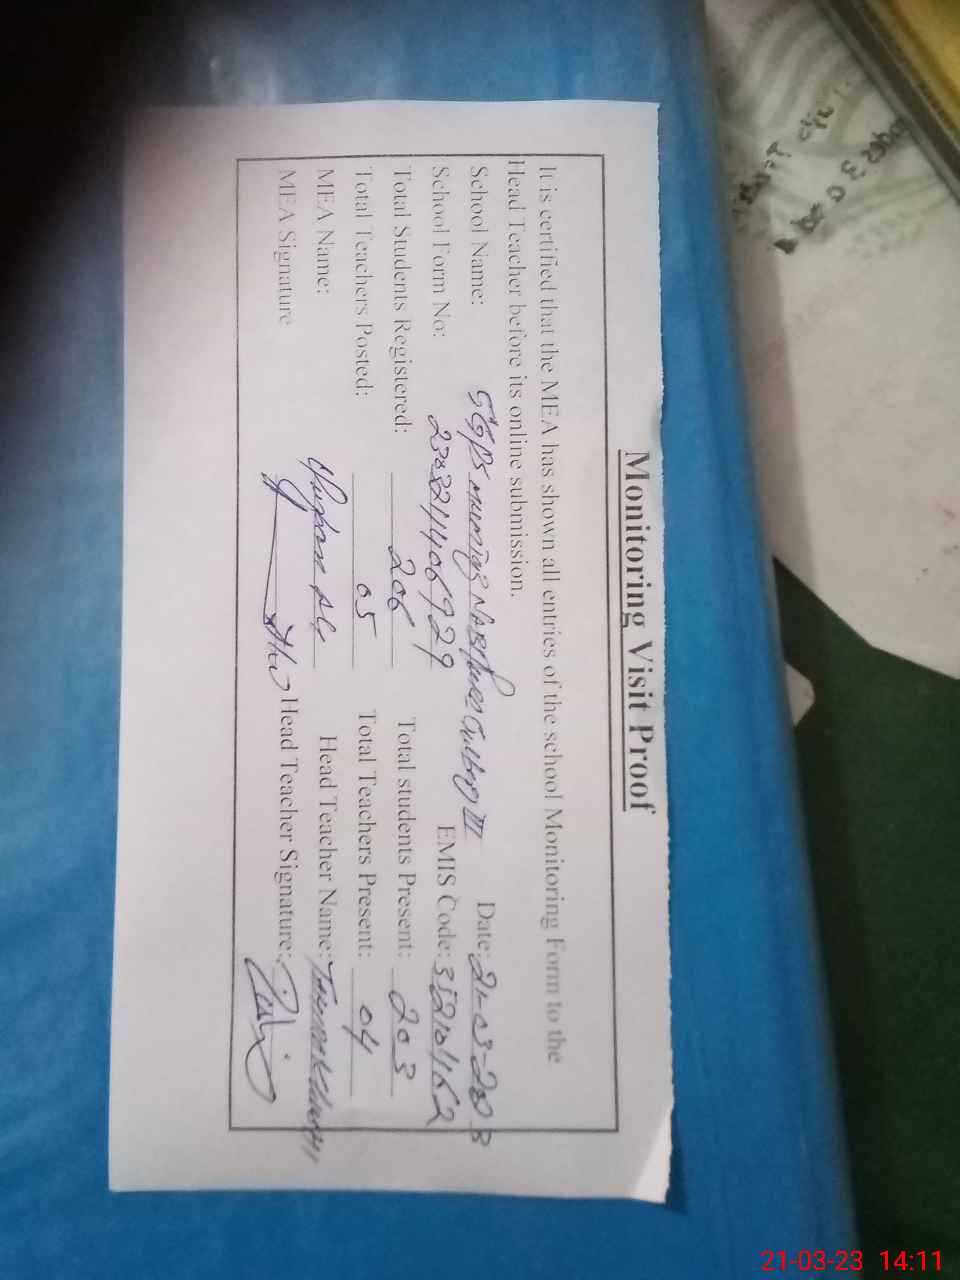 Monitoring Visit Proof
It is certified that the MEA has shown all entries of the school Monitoring Form to the
Head Teacher before its online submission.
School Name: Gulberg III Date: 21-03-2023
School Form No: EMIS Code: 35210462
Total Students Registered: 206 Total students Present: 203
Total Teachers Posted: 05 Total Teachers Present: 04
MEA Name: Head Teacher Name:
MEA Signature Head Teacher Signature:
21-03-23 14:11